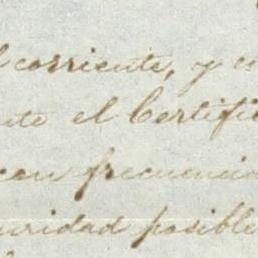 l corriente, y c
nte el Certifi
con frecuencia
uridad posible